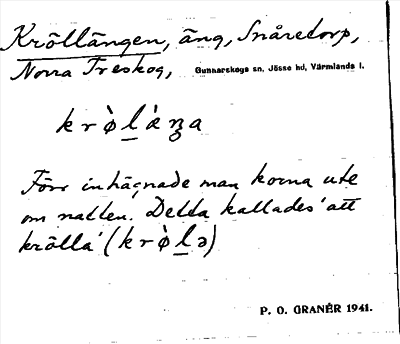 Kröllängen, äng, Snåretorp,
Norra Treskog, Gunnarskogs sn, Jösse hd, Värmlands l.
krò̀l̲æ̀ŋa
Förr inhägnade man korna ute
om natten. Detta kallades 'att
krölla' (krò̀l̲ə)
P. O. GRANÉR 1941.